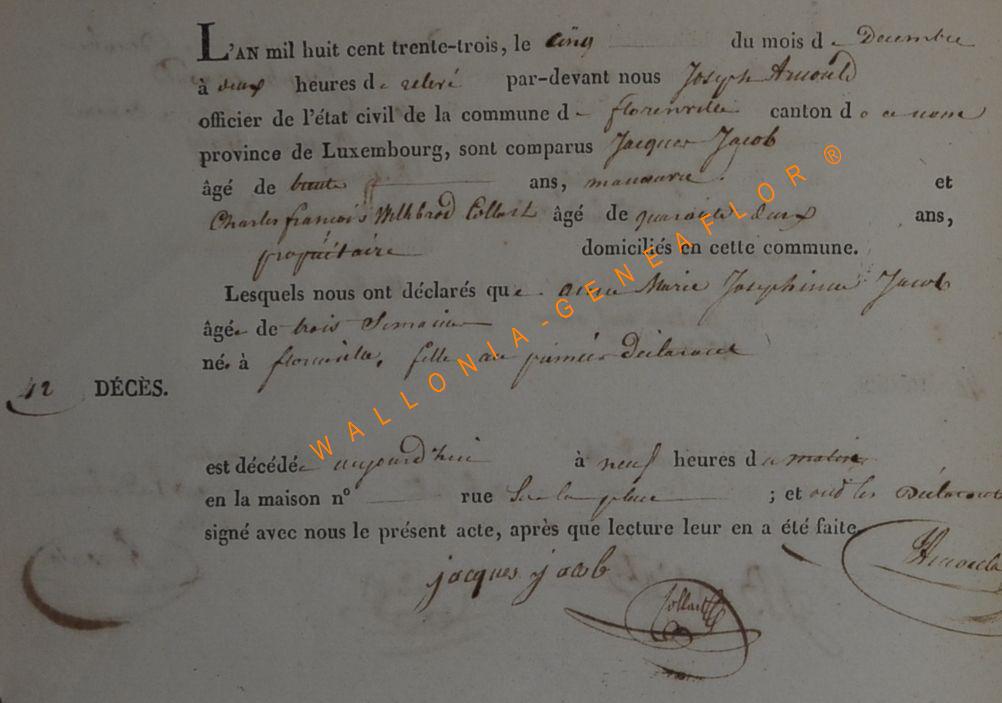 L'AN mil huit cent trente-trois, le cinq du mois de Decembre
à deux heures de relevé par-devant nous Joseph Arnould
officier de l'état civil de la commune de florenville canton de ce nom
province de Luxembourg, sont comparus Jacques Jacob
âgé de trente ans, manœuvre. et
Charles françois Willibrod Collart âgé de quarante deux ans,
propriétaire domiciliés en cette commune.
Lesquels nous ont déclarés que Marie Josephine Jacob
âgée de trois Semaines
née à florenville, fille au premier Déclarant
42 DÉCÈS.
est décédée aujourd'hui à neuf heures du matin
en la maison n° rue Sur la place ; et ont les Déclarants
signé avec nous le présent acte, après que lecture leur en a été faite
Arnould
jacques jacob
Collart
WALLONIA-GENEAFLOR ®